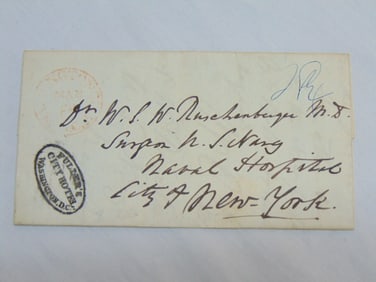 Dr. W. S. W. Ruschenberger M.D.
Surgeon U.S. Navy
Naval Hospital
City of New-York.
FULLER'S
CITY HOTEL
WASHINGTON, D.C.